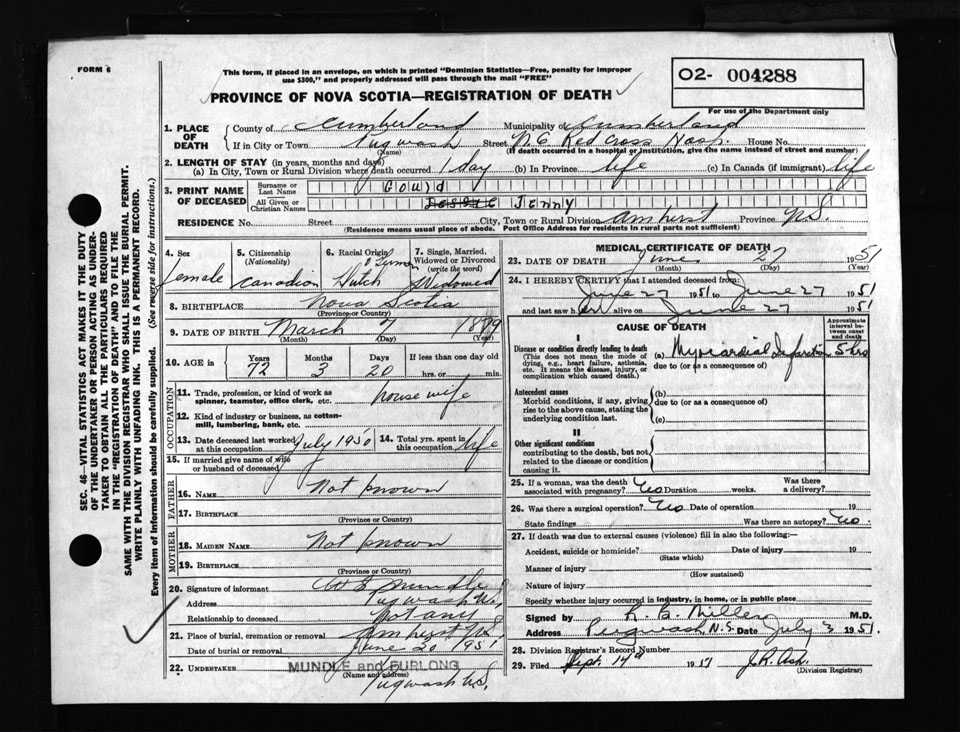 FORM 6
This form, if placed in an envelope, on which is printed "Dominion Statistics—Free, penalty for improper
use $300," and properly addressed will pass through the mail "FREE"
02- 004288
PROVINCE OF NOVA SCOTIA—REGISTRATION OF DEATH
For use of the Department only
1. PLACE OF DEATH County of Cumberland Municipality of Cumberland
If in City or Town Pugwash Street N.C. Red Cross Hosp. House No.
(Name) (If death occurred in a hospital or institution, give the name instead of street and number)
2. LENGTH OF STAY (in years, months and days)
(a) In City, Town or Rural Division where death occurred 1 day (b) In Province life (c) In Canada (if immigrant) life
3. PRINT NAME OF DECEASED Surname or Last Name Gould
All Given or Christian Names Jenny
RESIDENCE No. Street City, Town or Rural Division Amherst Province N.S.
(Residence means usual place of abode. Post Office Address for residents in rural parts not sufficient)
4. Sex female
5. Citizenship (Nationality) Canadian
6. Racial Origin Dutch
7. Single, Married, Widowed or Divorced (write the word) Widowed
8. BIRTHPLACE Nova Scotia
(Province or Country)
9. DATE OF BIRTH March 7 1879
(Month) (Day) (Year)
10. AGE in Years Months Days If less than one day old
72 3 20 hrs. or min.
OCCUPATION
11. Trade, profession, or kind of work as spinner, teamster, office clerk, etc. housewife
12. Kind of industry or business, as cotton-mill, lumbering, bank, etc.
13. Date deceased last worked at this occupation July 1950 14. Total yrs. spent in this occupation life
15. If married give name of wife or husband of deceased
FATHER
16. NAME Not known
17. BIRTHPLACE
(Province or Country)
MOTHER
18. MAIDEN NAME Not known
19. BIRTHPLACE
(Province or Country)
20. Signature of informant Mundle
Address Pugwash N.S.
Relationship to deceased Not any
21. Place of burial, cremation or removal Amherst N.S.
Date of burial or removal June 20 1951
22. UNDERTAKER MUNDLE and FURLONG
(Name and address)
Pugwash N.S.
MEDICAL CERTIFICATE OF DEATH
23. DATE OF DEATH June 27 1951
(Month) (Day) (Year)
24. I HEREBY CERTIFY that I attended deceased from:
June 27 1951 to June 27 1951
and last saw her alive on June 27 1951
CAUSE OF DEATH
Approximate interval between onset and death
I
Disease or condition directly leading to death (a) Myocardial Infarction 5 hrs
(This does not mean the mode of dying, e.g., heart failure, asthenia, etc. It means the disease, injury, or complication which caused death.)
due to (or as a consequence of)
Antecedent causes (b)
Morbid conditions, if any, giving rise to the above cause, stating the underlying condition last.
due to (or as a consequence of)
(c)
II
Other significant conditions
contributing to the death, but not related to the disease or condition causing it.
25. If a woman, was the death associated with pregnancy? No Duration weeks. Was there a delivery?
26. Was there a surgical operation? No Date of operation 19
State findings Was there an autopsy? No.
27. If death was due to external causes (violence) fill in also the following:—
Accident, suicide or homicide? Date of injury 19
(State which)
Manner of injury
(How sustained)
Nature of injury
Specify whether injury occurred in industry, in home, or in public place
Signed by R. B. Miller M.D.
Address Pugwash, N.S. Date July 3 1951.
28. Division Registrar's Record Number
29. Filed Sept. 14 1951 J.R. Ash.
(Division Registrar)
SEC. 46—VITAL STATISTICS ACT MAKES IT THE DUTY
OF THE UNDERTAKER OR PERSON ACTING AS UNDER-
TAKER TO OBTAIN ALL THE PARTICULARS REQUIRED
IN THE "REGISTRATION OF DEATH" AND TO FILE THE
SAME WITH THE DIVISION REGISTRAR WHO SHALL ISSUE THE BURIAL PERMIT.
WRITE PLAINLY WITH UNFADING INK. THIS IS A PERMANENT RECORD.
Every item of information should be carefully supplied. (See reverse side for instructions.)